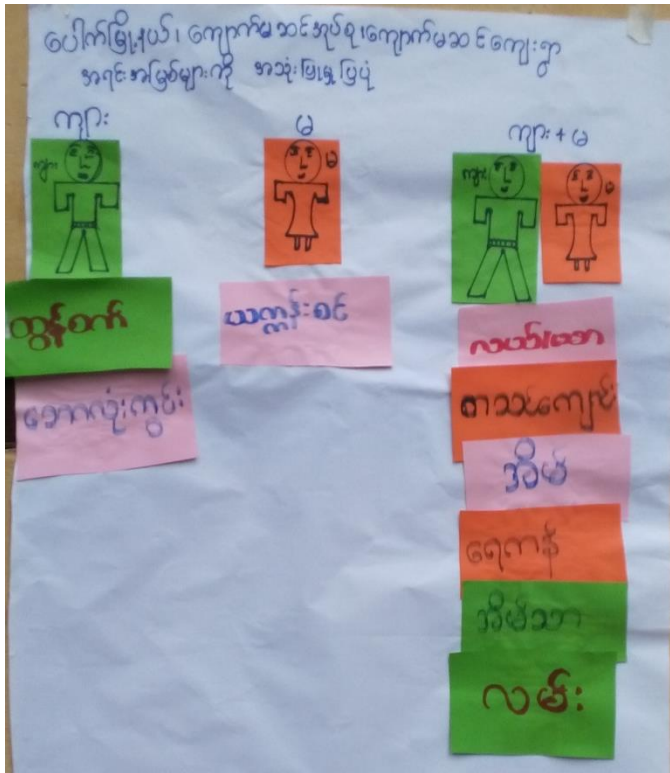 ပေါက်မြို့နယ်၊ ကျောက်မဆင်အုပ်စု၊ကျောက်မဆင်ကျေးရွာ
အရင်းအမြစ်များကို အသုံးပြုမှုပြပုံ
ကျား
မ
ကျား + မ
ကျား
မ
ကျား
မ
ထွန်စက်
ယက္ကန်းစင်
ဘောလုံးကွင်း
စာသင်ကျောင်း
အိမ်
ရေကန်
အိမ်သာ
လမ်း